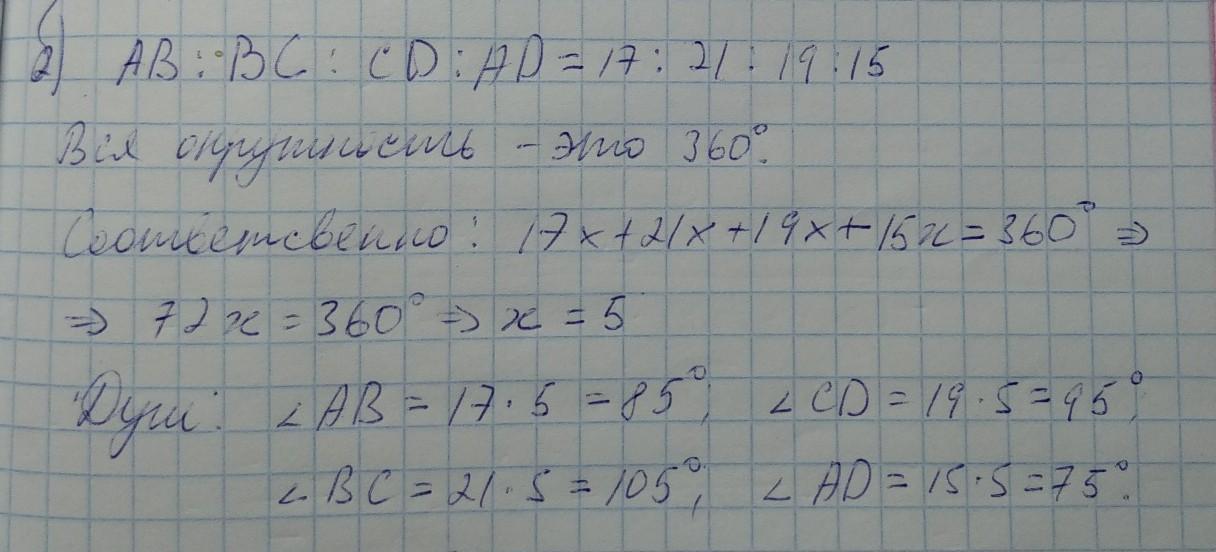 б) AB : BC : CD : AD = 17 : 21 : 19 : 15
Вся окружность - это 360°.
Соответсвенно: 17x+21x+19x+15x=360° ⇒
⇒ 72x = 360° ⇒ x = 5
Дуги: ∠AB = 17·5 = 85°; ∠CD = 19·5=95°;
∠BC = 21·5 = 105°; ∠AD = 15·5=75°.